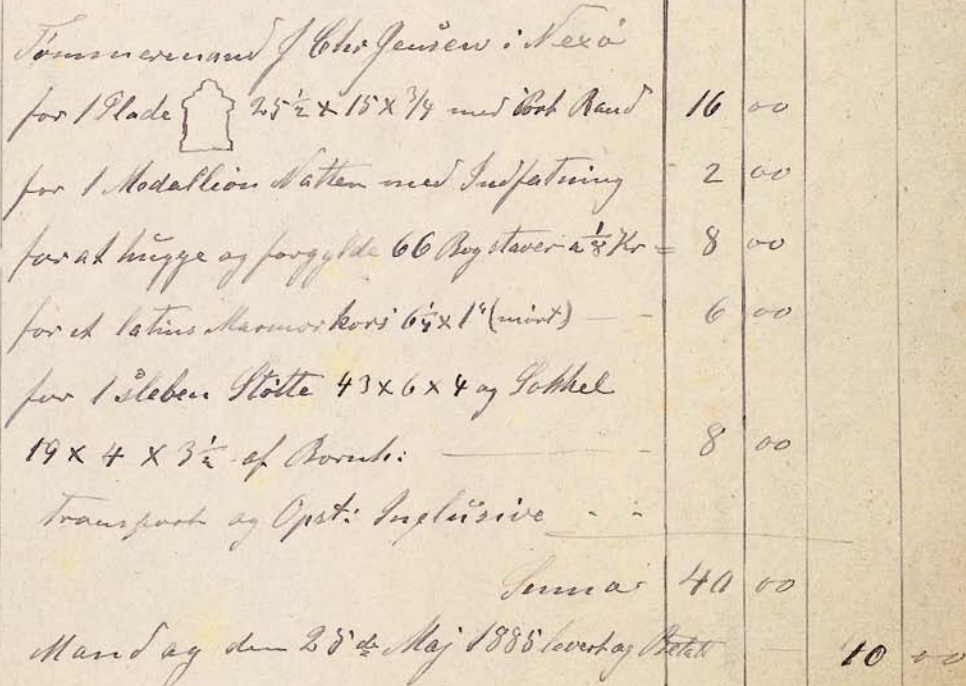 Tømmermand J Chr Jensen i Nexø
for 1 Plade 25½ × 15 × ¾ med Rand 16 00
for 1 Medallion Natten med Indfatning - 2 00
for at hugge og forgylde 66 Bogstaver a ⅛ Kr = 8 00
for et latins Marmorkors 6¼ × 1" - - 6 00
for 1 sleben Støtte 43 × 6 × 4 og Sokkel
19 × 4 × 3½ af Bornh: - 8 00
Transport og Opst: Inglusive - -
Summa 40 00
Mandag den 25de Maj 1885 levert og Betalt - 10 00